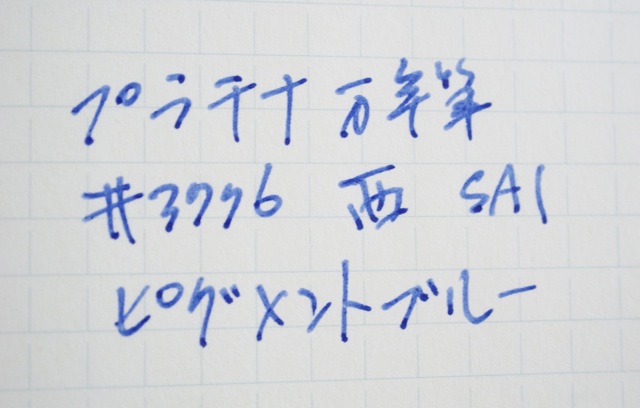 プラチナ 万年筆
#3776 西 SAI
ピグメントブルー